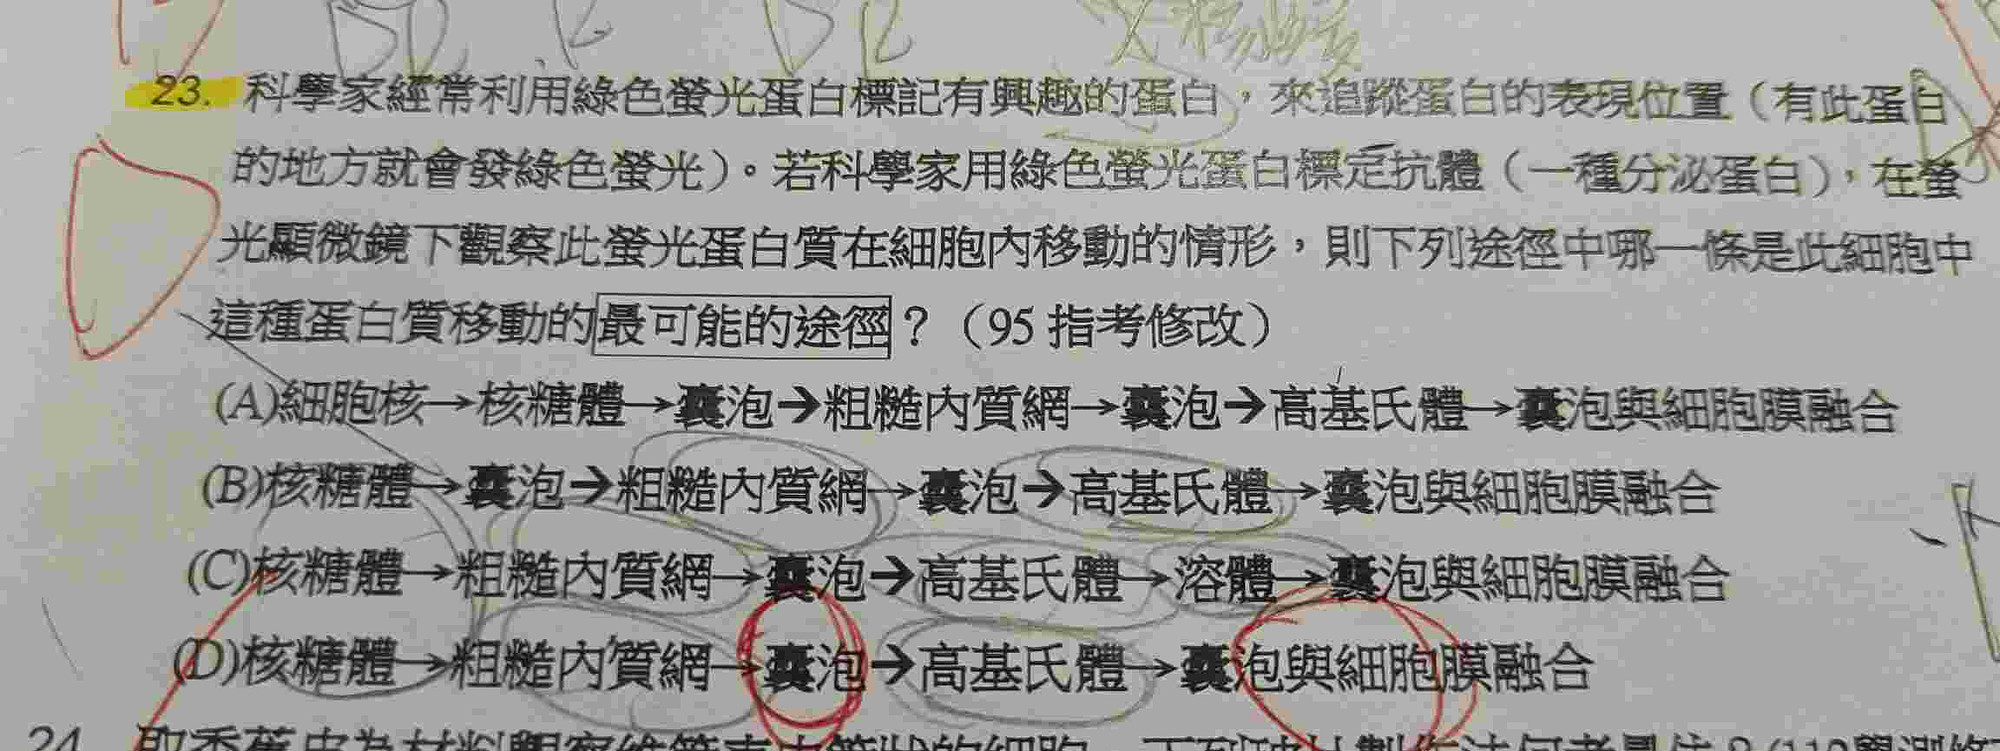 23. 科學家經常利用綠色螢光蛋白標記有興趣的蛋白，來追蹤蛋白的表現位置（有此蛋白
的地方就會發綠色螢光）。若科學家用綠色螢光蛋白標定抗體（一種分泌蛋白），在螢
光顯微鏡下觀察此螢光蛋白質在細胞內移動的情形，則下列途徑中哪一條是此細胞中
這種蛋白質移動的最可能的途徑？（95 指考修改）
(A)細胞核→核糖體→囊泡→粗糙內質網→囊泡→高基氏體→囊泡與細胞膜融合
(B)核糖體→囊泡→粗糙內質網→囊泡→高基氏體→囊泡與細胞膜融合
(C)核糖體→粗糙內質網→囊泡→高基氏體→溶體→囊泡與細胞膜融合
(D)核糖體→粗糙內質網→囊泡→高基氏體→囊泡與細胞膜融合
24.